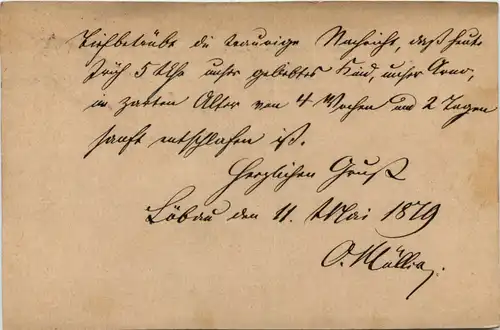 Tiefbetrübt die traurige Nachricht, daß heute
früh 5 Uhr unser geliebtes Kind, unser Arno,
im zarten Alter von 4 Wochen und 2 Tagen
sanft entschlafen ist.
Herzlichen Gruß
Löbau den 11. Mai 1879
O.